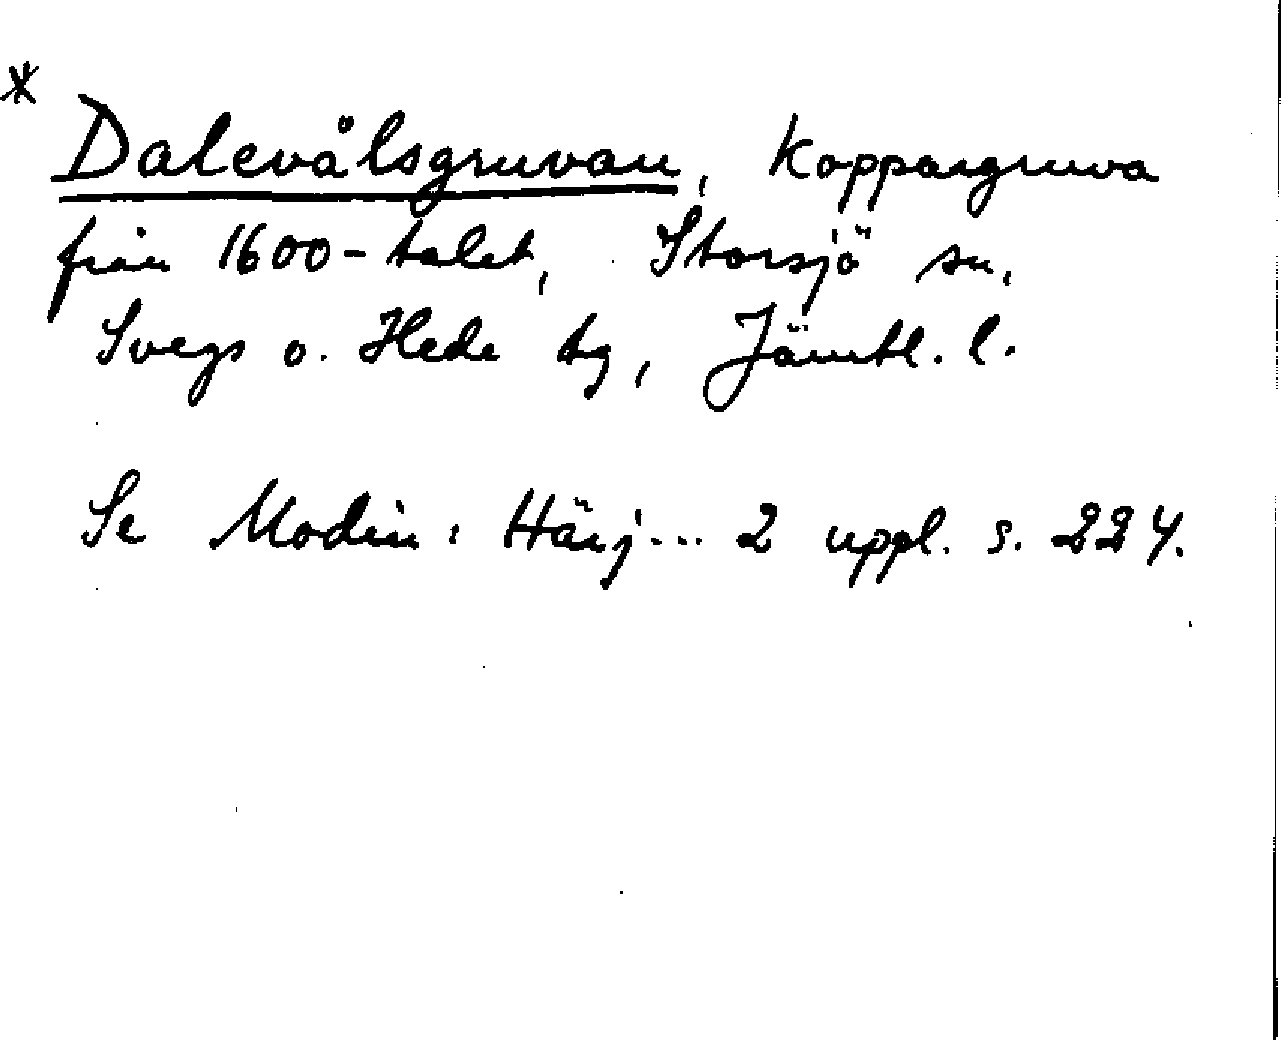 * Dalevålsgruvan, koppargruva
från 1600-talet, Storsjö sn,
Svegs o. Hede tg, Jämtl. l.
Se Modin: Härj... 2 uppl. s. 224.